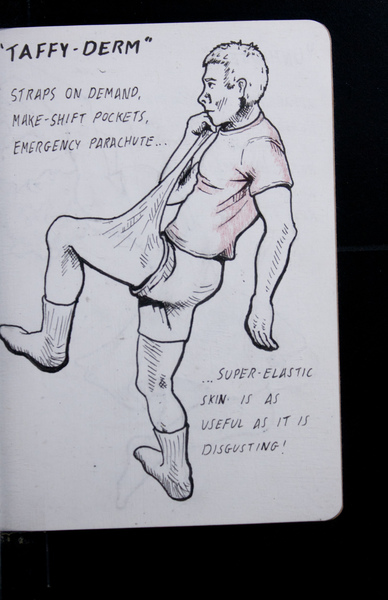 "TAFFY-DERM"
STRAPS ON DEMAND,
MAKE-SHIFT POCKETS,
EMERGENCY PARACHUTE...
...SUPER-ELASTIC
SKIN IS AS
USEFUL AS IT IS
DISGUSTING!